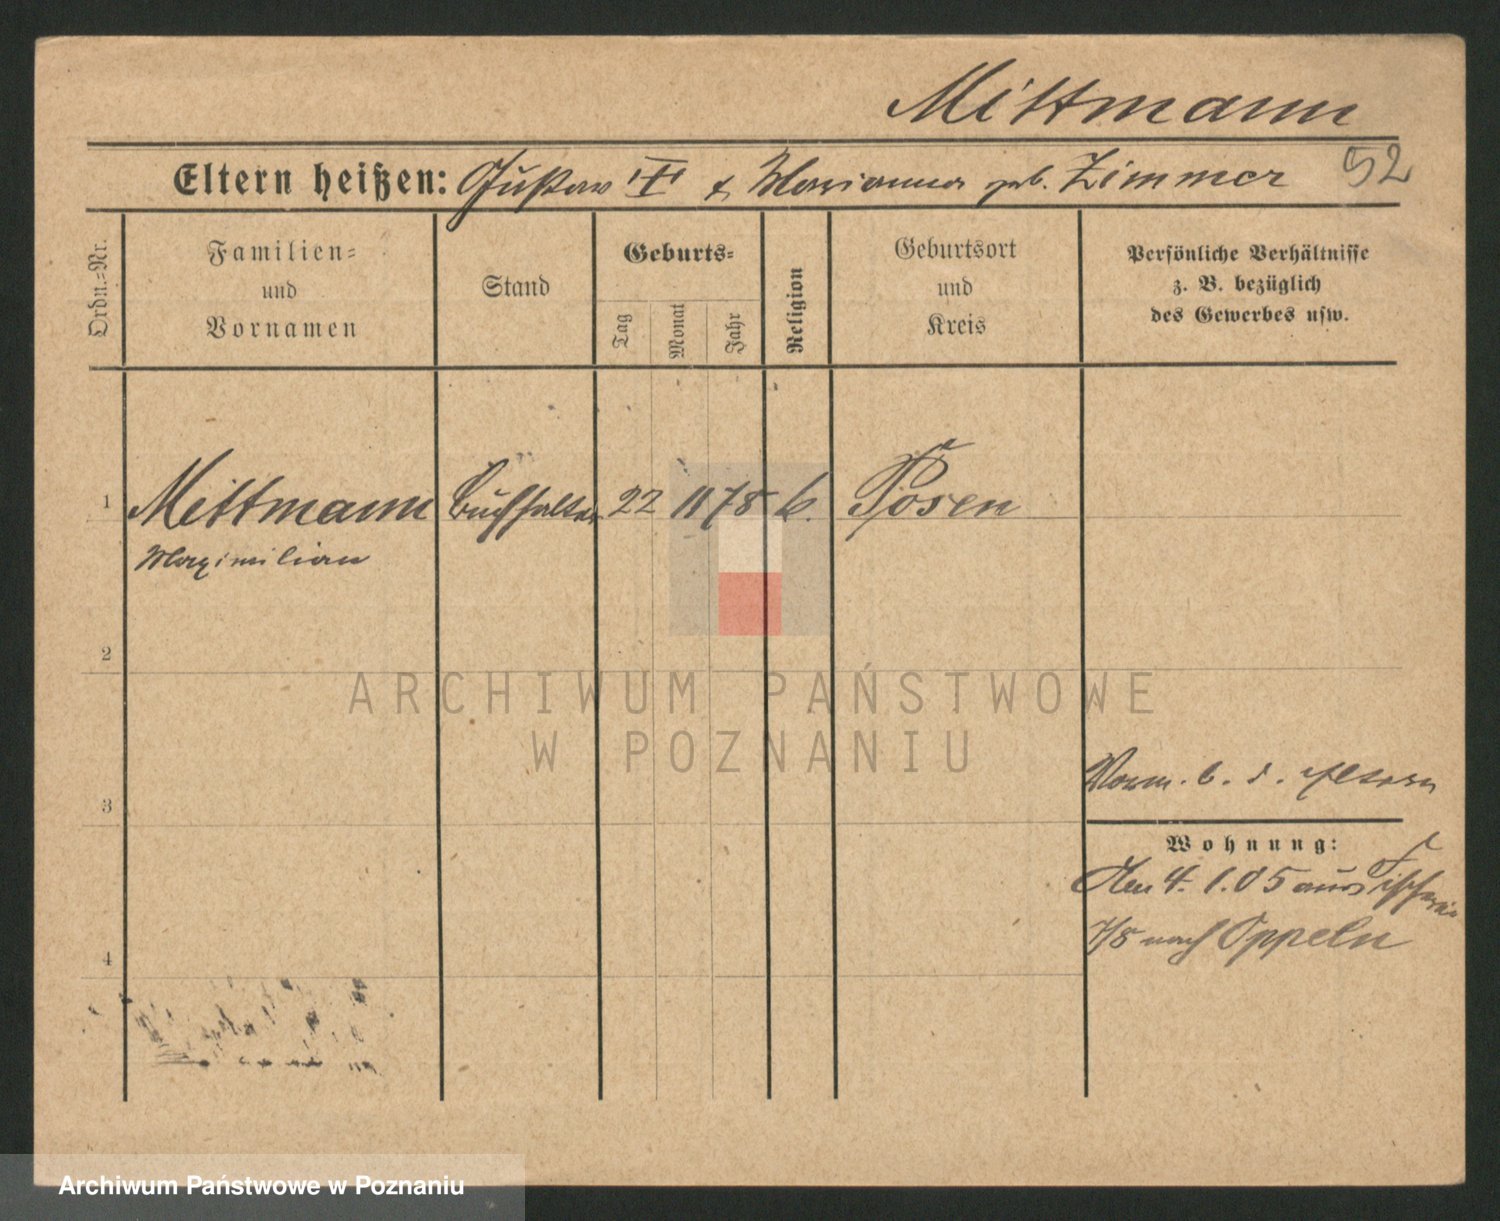 Mittmann
52
Eltern heißen: Gustav & Marianna geb. Zimmer
Ordn.-Nr.
Familien-
und
Vornamen
Stand
Geburts-
Tag
Monat
Jahr
Religion
Geburtsort
und
Kreis
Persönliche Verhältnisse
z. B. bezüglich
des Gewerbes usw.
1 Mittmann Buchhalter 22 11 78 k. Posen
Maximilian
2
ARCHIWUM PAŃSTWOWE
W POZNANIU
b. d. Eltern
3
Wohnung:
Den 4. 1. 05 aus Fischerei
7/8 nach Oppeln
4
Archiwum Państwowe w Poznaniu